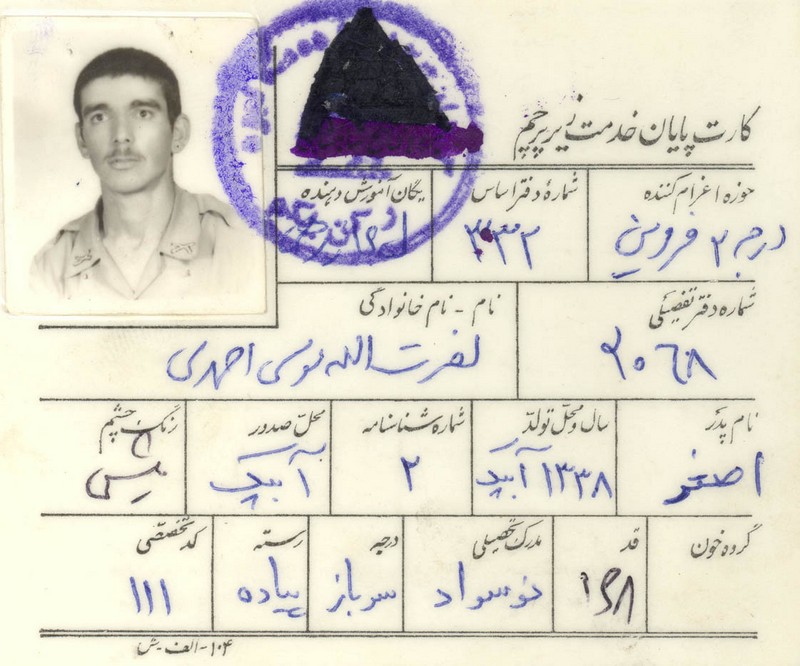 کارت پایان خدمت زیر پرچم
حوزه اعزام کننده شمارهٔ دفتر اساس یگان آموزش دهنده
درجه ۲ قزوین ۳۳۲
شماره دفتر تفصیلی نام - نام خانوادگی
۲۰۶۸ نصرت الله موسی احمدی
نام پدر سال و محل تولد شماره شناسنامه محل صدور رنگ چشم
اصغر ۱۳۳۸ آبیک ۲ آبیک میشی
گروه خون قد مدرک تحصیلی درجه رسته کد تخصصی
نوسواد سرباز پیاده ۱۱۱
۱۰۴-الف-ش